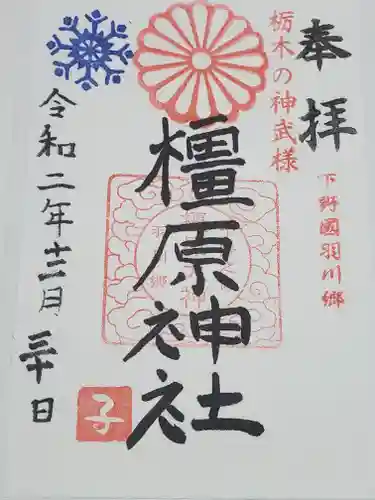 奉拝
栃木の神武様
下野國羽川郷
橿原神社
令和二年十二月三十日
子